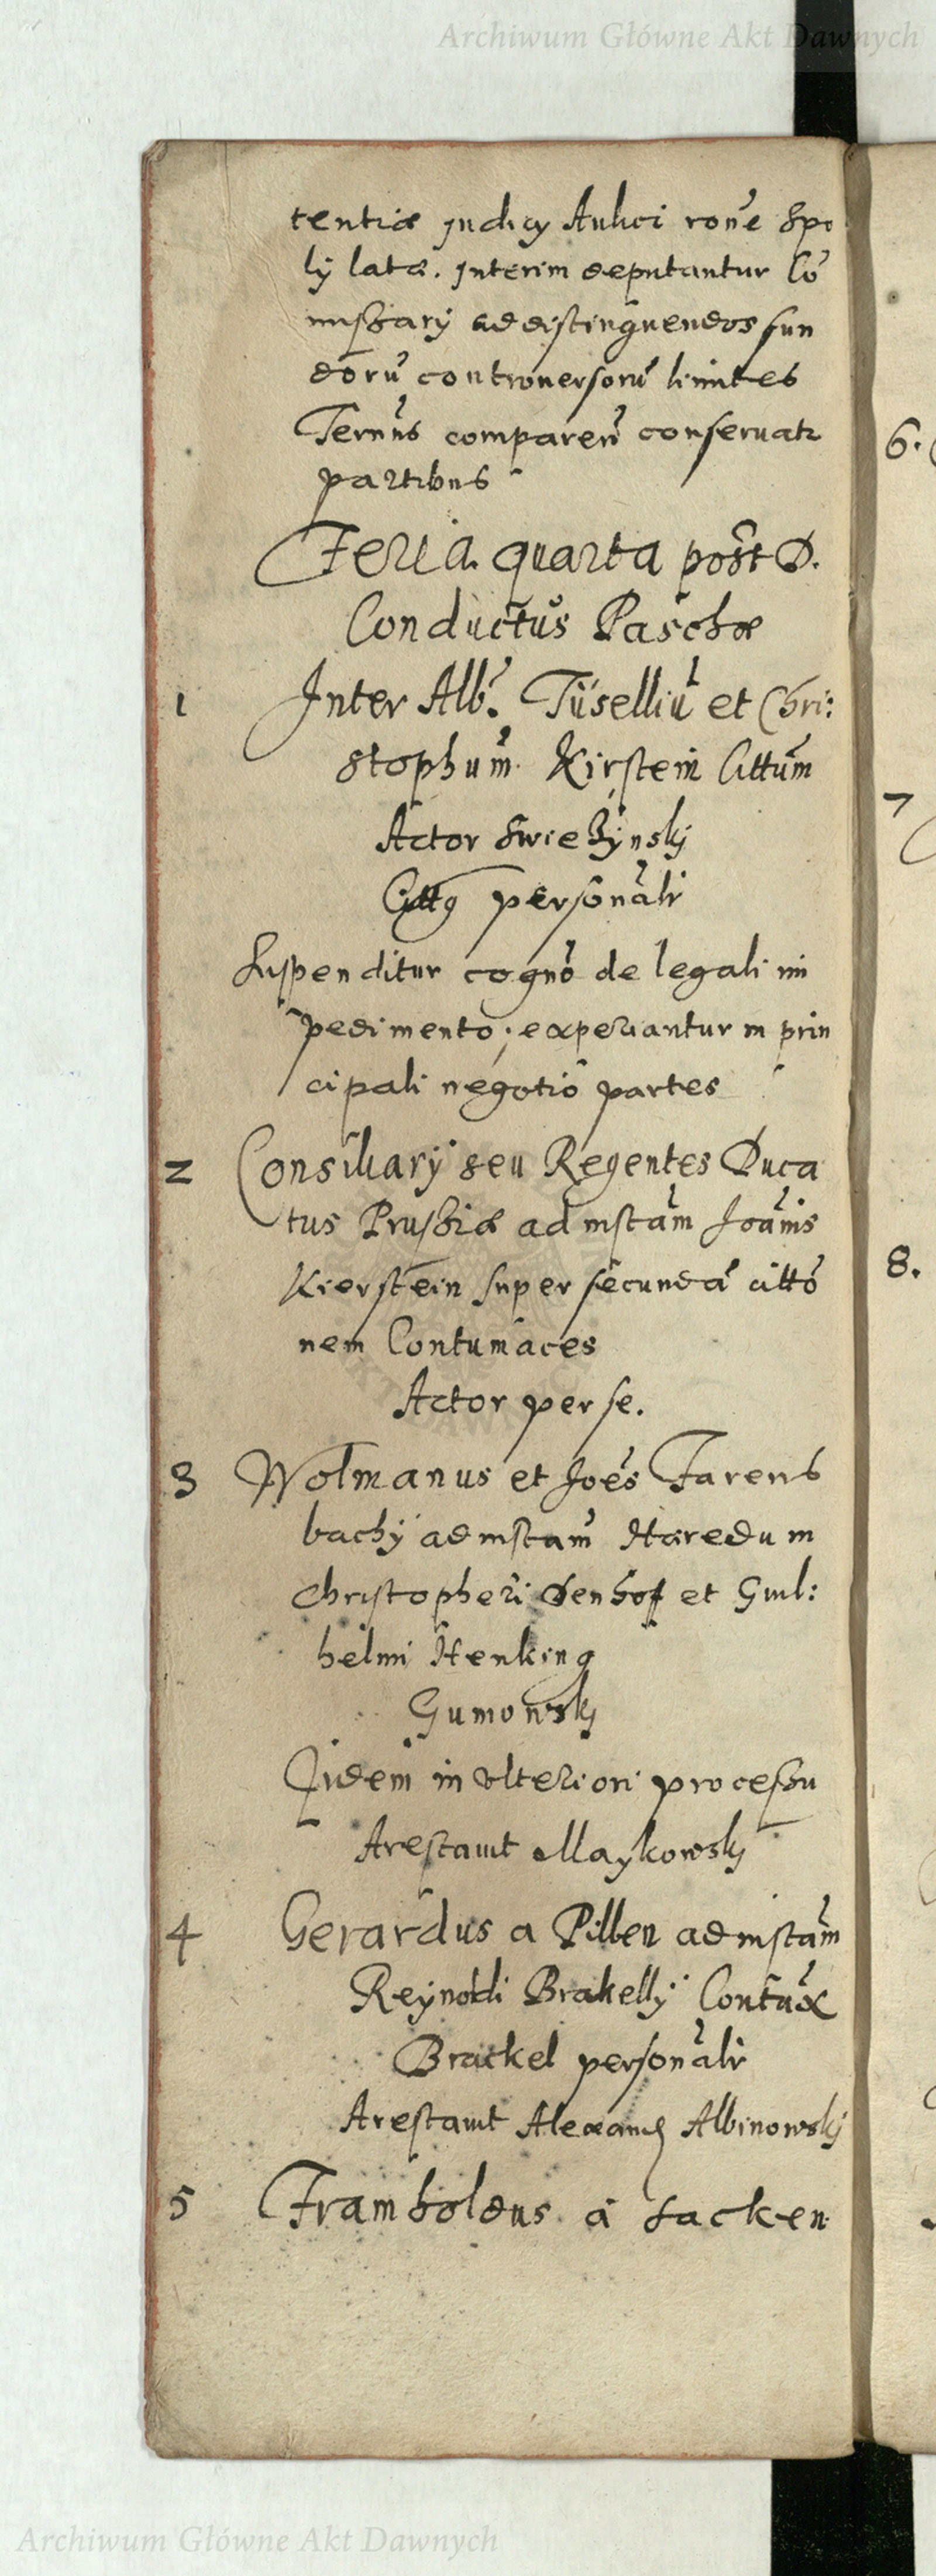 Archiwum Główne Akt Dawnych
tentiæ judicy Aulici rone spo
ly latæ. Interim deputantur Co
missary ad distinguendos fun
doru controversoru limites
Termus comparen conservatr
partibus
Feria quarta post D.
Conductus Paschæ
1 Inter Alb. Tüselliu et Chri:
stophum Kirstein Cittum
Actor Swieżynskj
Citt9 personalr
Suspenditur cogno de legali im
pedimento; experiantur in prin
cipali negotio partes
2 Consiliarÿ seu Regentes Duca
tus Prussiæ ad instam Joānis
Kierstein super secunda citto
nem Contumaces
Actor per se.
3 Wolmanus et Joes Farens
bachÿ ad instam Hæredum
Christopheri Denhof et Guil:
helmi Henking
Gumowskj
Iidem in ulteriori processu
Arestavit Maykowskj
4 Gerardus a Pillen ad instam
Reynoldi Brakellÿ Contuax
Brackel personalr
Arestavit Alexand Albinowskj
5 Framboldus à Sacken
6.
7
8.
Archiwum Główne Akt Dawnych